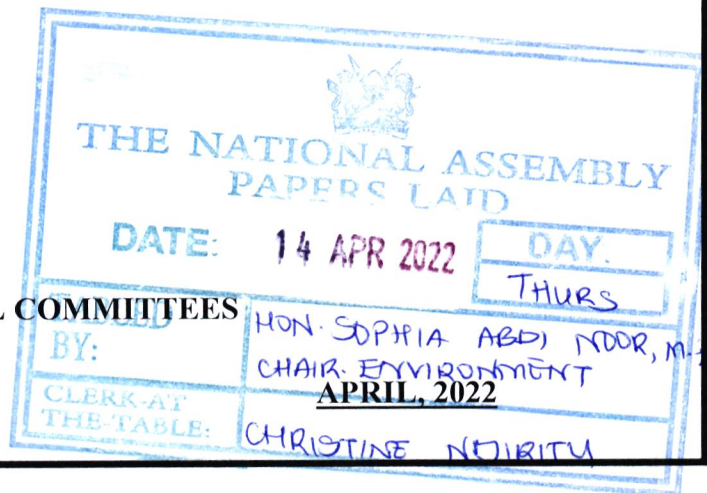 THE NATIONAL ASSEMBLY
PAPERS LAID
DATE: 14 APR 2022 DAY.
THURS
L COMMITTEES
BY: HON. SOPHIA ABDI NOOR, M.
CHAIR. ENVIRONMENT
APRIL, 2022
CLERK-AT
THE-TABLE: CHRISTINE NDIRITU